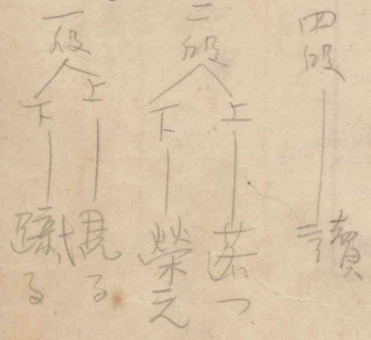 四段 讀
二段
上 落つ
下 榮え
一段
上 見る
下 蹴る